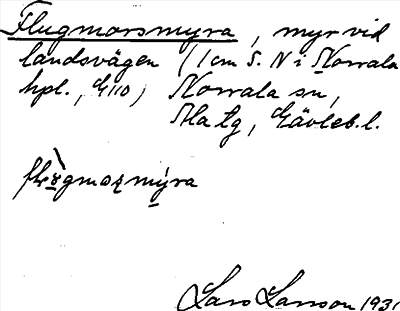 Flugmorsmyra, myr vid
landsvägen (1 cm S. N i Norrala
hpl., G110) Norrala sn,
Ala tg, Gävleb. l.
Lars Larsson 1931